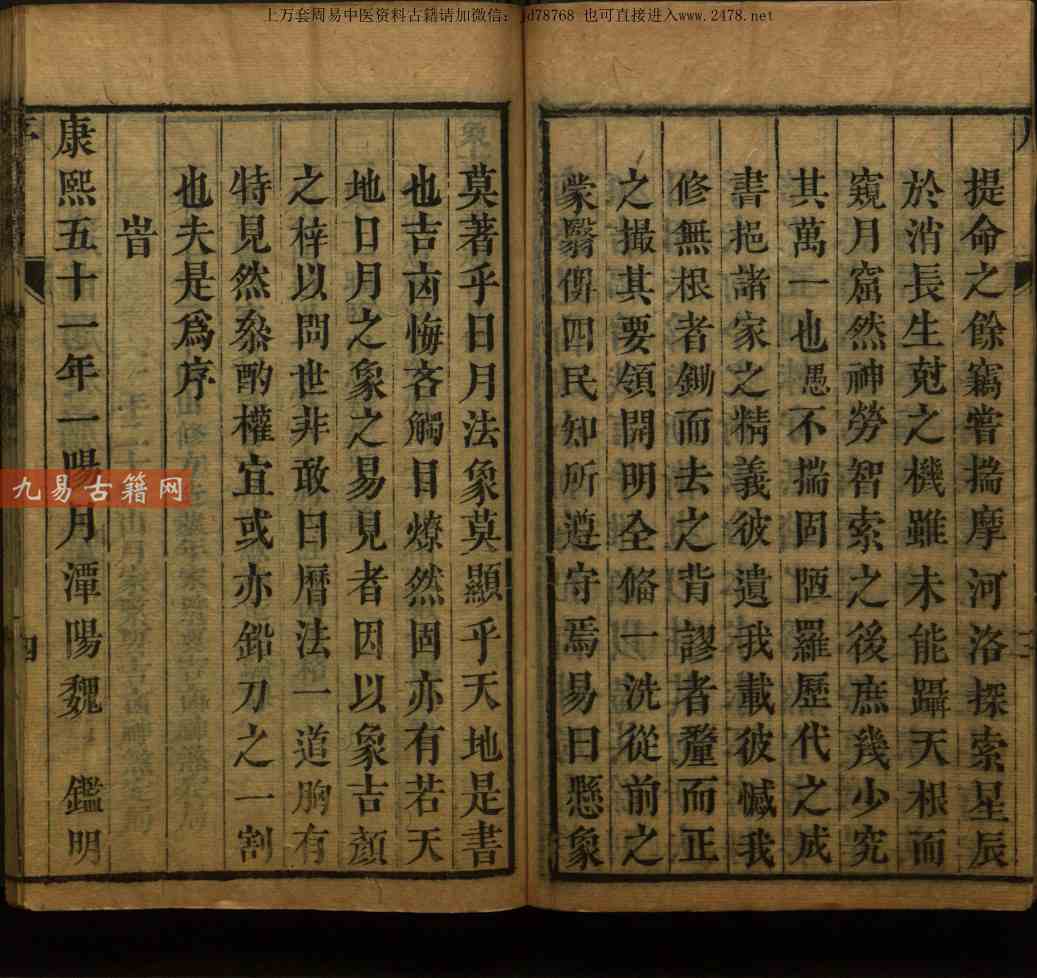 上万套周易中医资料古籍请加微信：jd78768 也可直接进入www.2478.net
提命之餘竊嘗揣摩河洛探索星辰
於消長生尅之機雖未能躡天根而
窺月窟然神勞智索之後庶幾少究
其萬一也愚不揣固陋羅歷代之成
書挹諸家之精義彼遺我載彼憾我
修無根者鋤而去之背謬者釐而正
之撮其要領開明全俻一洗從前之
蒙翳俾四民知所遵守焉易曰懸象
莫著乎日月法象莫顯乎天地是書
也吉凶悔吝觸目燎然固亦有若天
地日月之象之易見者因以象吉顏
之梓以問世非敢曰曆法一道胸有
特見然叅酌權宜或亦鉛刀之一割
也夫是爲序
旹
康熙五十一年一陽月潭陽魏 鑑明
序
四
九易古籍网